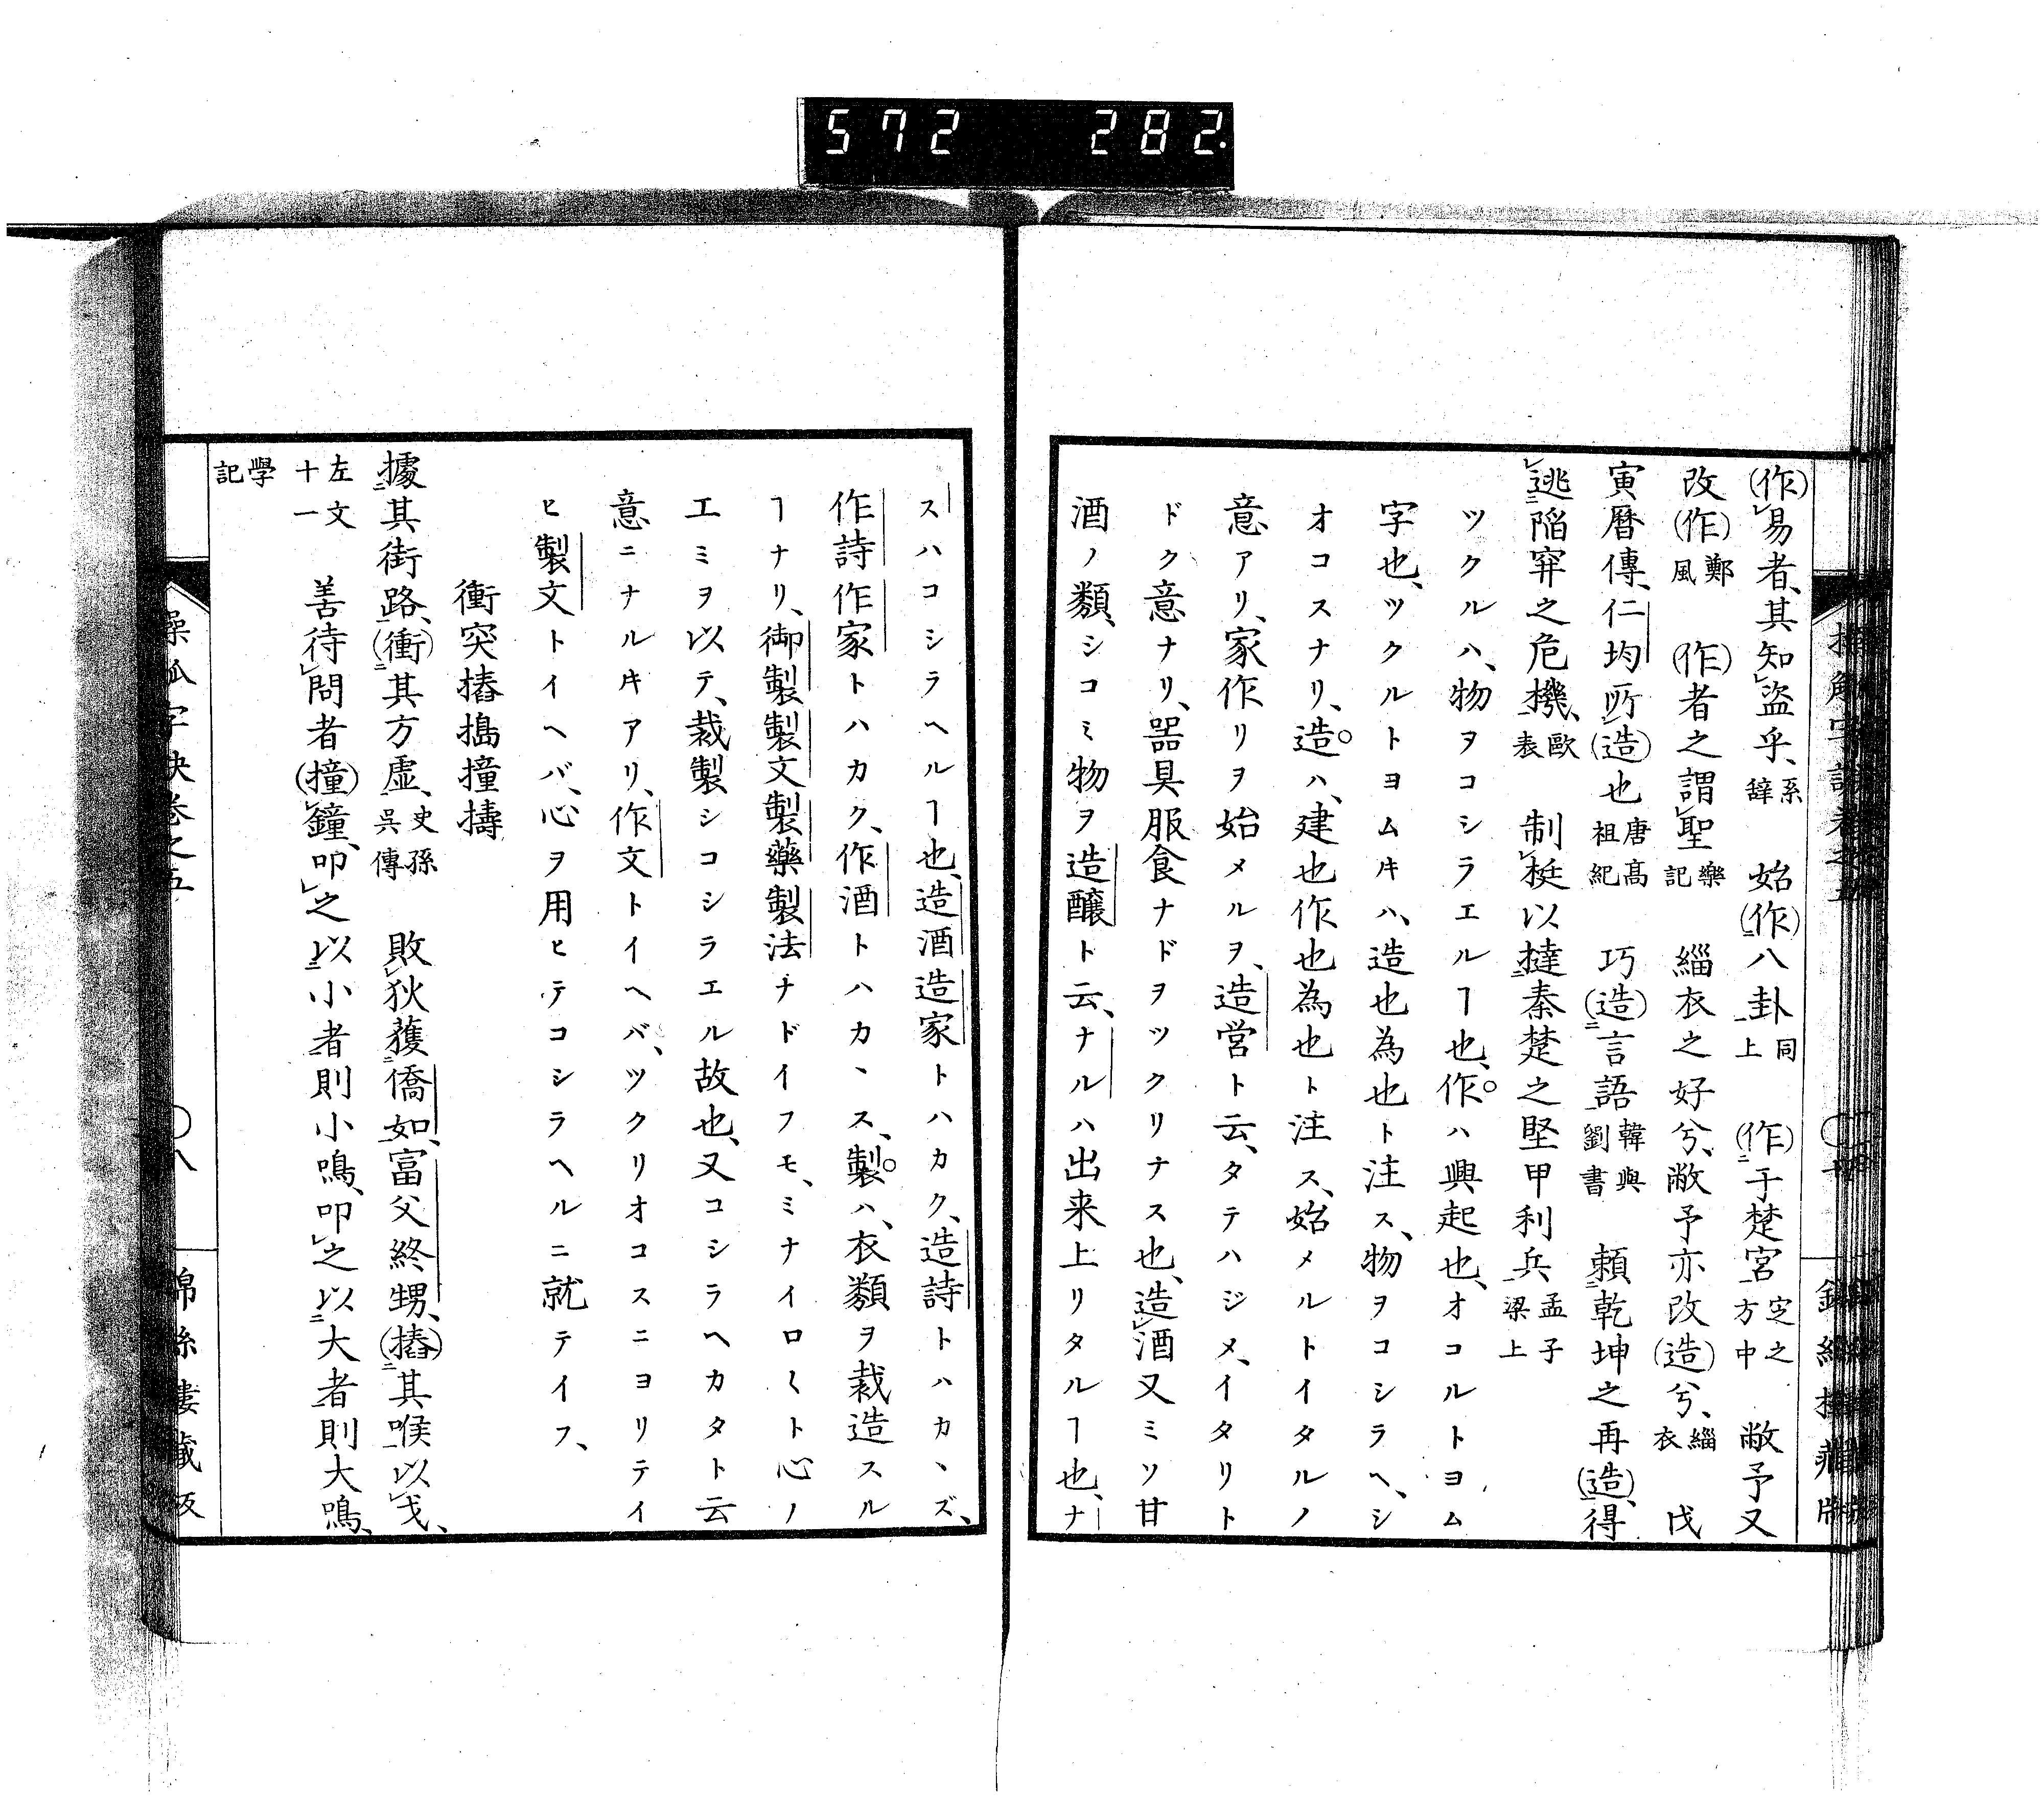 572 282
(作)易者、其知盗乎、系辭 始(作)八卦 同上 (作)于楚宮 定之方中 敝予又
改(作) 鄭風 (作)者之謂聖 樂記 緇衣之好兮、敝予亦改(造)兮、緇衣 戊
寅曆傳、仁均所(造)也 唐高祖紀 巧(造)言語 韓與劉書 頼乾坤之再(造)、得
逃陥穽之危機、歐表 制梃以撻秦楚之堅甲利兵 孟子梁上
ツクルハ、物ヲコシラエルヿ也、作ハ興起也、オコルトヨム
字也、ツクルトヨムキハ、造也為也ト注ス、物ヲコシラヘ、シ
オコスナリ、造ハ、建也作也為也ト注ス、始メルトイタルノ
意アリ、家作リヲ始メルヲ、造営ト云、タテハジメ、イタリト
ドク意ナリ、器具服食ナドヲツクリナス也、造酒又ミソ甘
酒ノ類、シコミ物ヲ造釀ト云、ナルハ出来上リタルヿ也、ナ
スハコシラヘルヿ也、造酒造家トハカク、造詩トハカヽズ、
作詩作家トハカク、作酒トハカヽス、製ハ、衣類ヲ裁造スル
ヿナリ、御製製文製藥製法ナドイフモ、ミナイロ〱ト心ノ
エミヲ以テ、裁製シコシラエル故也、又コシラヘカタト云
意ニナルキアリ、作文トイヘバ、ツクリオコスニヨリテイ
ヒ製文トイヘバ、心ヲ用ヒテコシラヘルニ就テイフ、
衝突摏搗撞擣
據其街路、(衝)其方虚、史孫呉傳 敗狄獲僑如、富父終甥、(摏)其喉以戈、
左文十一 善待問者(撞)鐘、叩之以小者則小鳴、叩之以大者則大鳴、
學記
操觚字訣巻之五 〇八 錦絲樓藏版